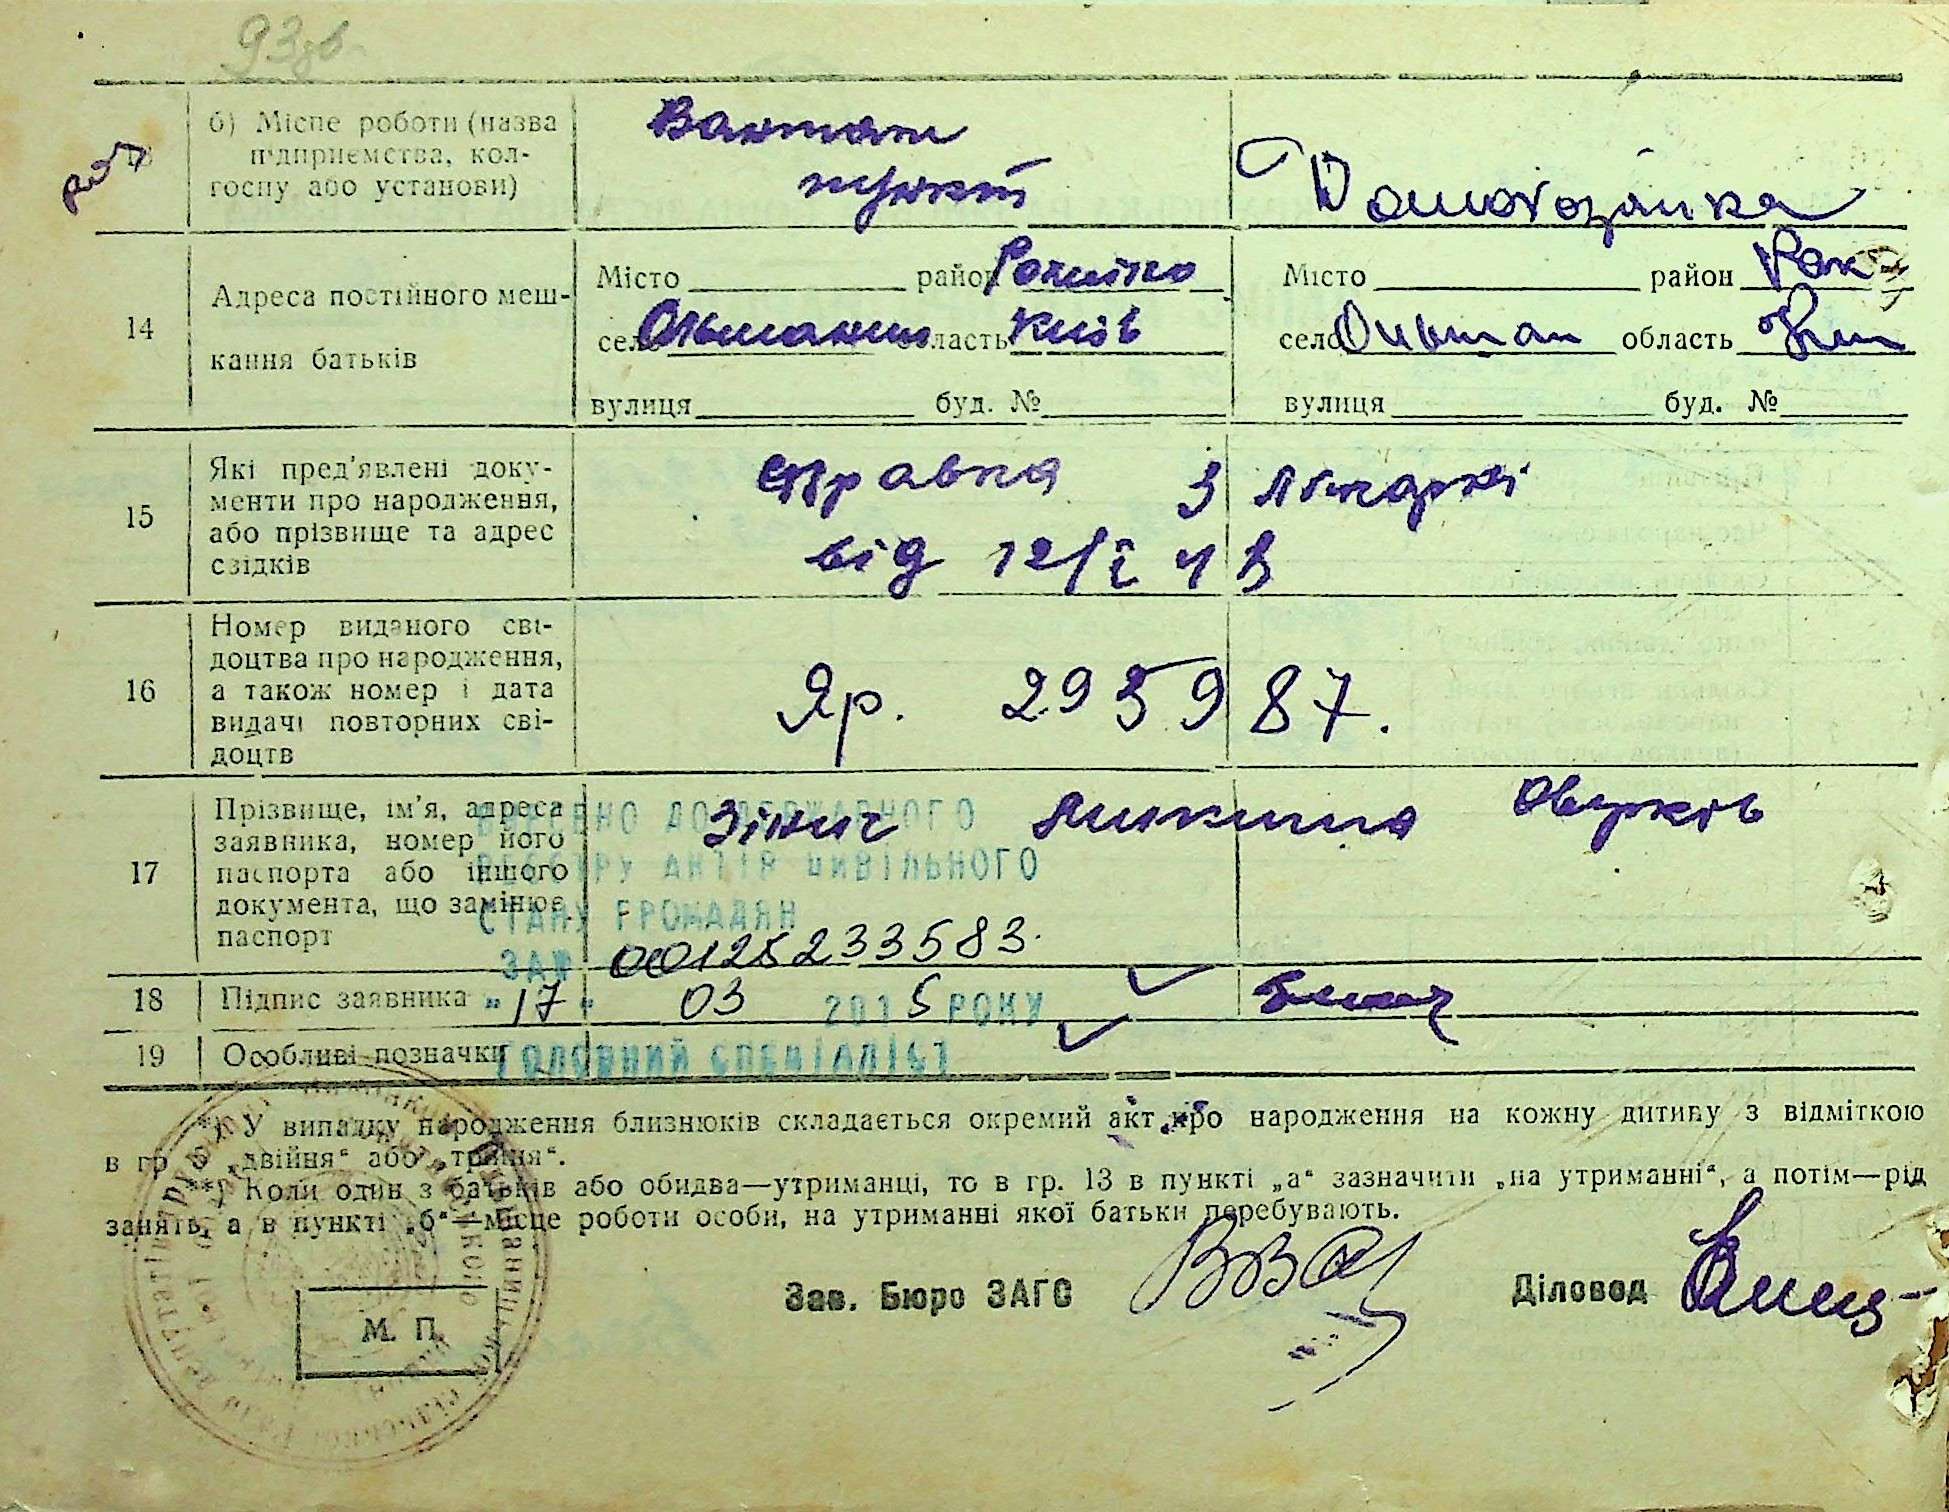 93зв
б) Місце роботи (назва
підприємства, кол-
госпу або установи)
пункт
Домогоз
14
Адреса постійного меш-
кання батьків
Місто район
село область Київ
вулиця буд. №
Місто район Рок
село Ольшан область
вулиця буд. №
15
Які пред'явлені доку-
менти про народження,
або прізвище та адрес
свідків
справка з лікарні
від 12/I 41 в
16
Номер виданого сві-
доцтва про народження,
а також номер і дата
видачі повторних сві-
доцтв
Яр. 295987.
17
Прізвище, ім'я, адреса
заявника, номер його
паспорта або іншого
документа, що замінює
паспорт
ДО ДЕРЖАВНОГО
РЕЄСТРУ АКТІВ ЦИВІЛЬНОГО
СТАНУ ГРОМАДЯН
ЗА № 00125233583.
18
Підпис заявника
"17" 03 2015 РОКУ
19
Особливі позначки
ГОЛОВНИЙ СПЕЦІАЛІСТ
*) У випадку народження близнюків складається окремий акт про народження на кожну дитину з відміткою
в гр 5 „двійня“ або „трійня“.
**) Коли один з батьків або обидва—утриманці, то в гр. 13 в пункті „а“ зазначити „на утриманні“, а потім—рід
занять, а в пункті „б“—місце роботи особи, на утриманні якої батьки перебувають.
Зав. Бюро ЗАГС
Діловод
М. П.